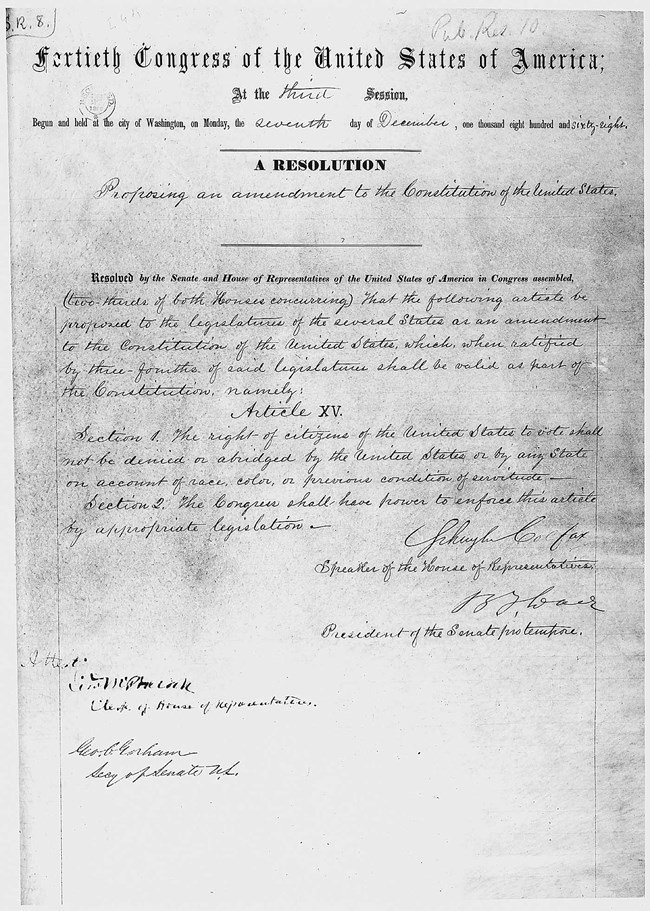 S.R. 8.
Pub. Res. 10
Fortieth Congress of the United States of America;
At the third Session,
Begun and held at the city of Washington, on Monday, the seventh day of December, one thousand eight hundred and sixty-eight.
A RESOLUTION
Proposing an amendment to the Constitution of the United States.
Resolved by the Senate and House of Representatives of the United States of America in Congress assembled,
(two-thirds of both Houses concurring) That the following article be
proposed to the legislatures of the several States as an amendment
to the Constitution of the United States, which, when ratified
by three-fourths of said legislatures shall be valid as part of
the Constitution, namely:
Article XV.
Section 1. The right of citizens of the United States to vote shall
not be denied or abridged by the United States or by any State
on account of race, color, or previous condition of servitude —
Section 2. The Congress shall have power to enforce this article
by appropriate legislation —
Schuyler Colfax
Speaker of the House of Representatives.
B F Wade
President of the Senate pro tempore.
Attest:
Clerk of House of Representatives.
Geo. C. Gorham
Secy of Senate U.S.